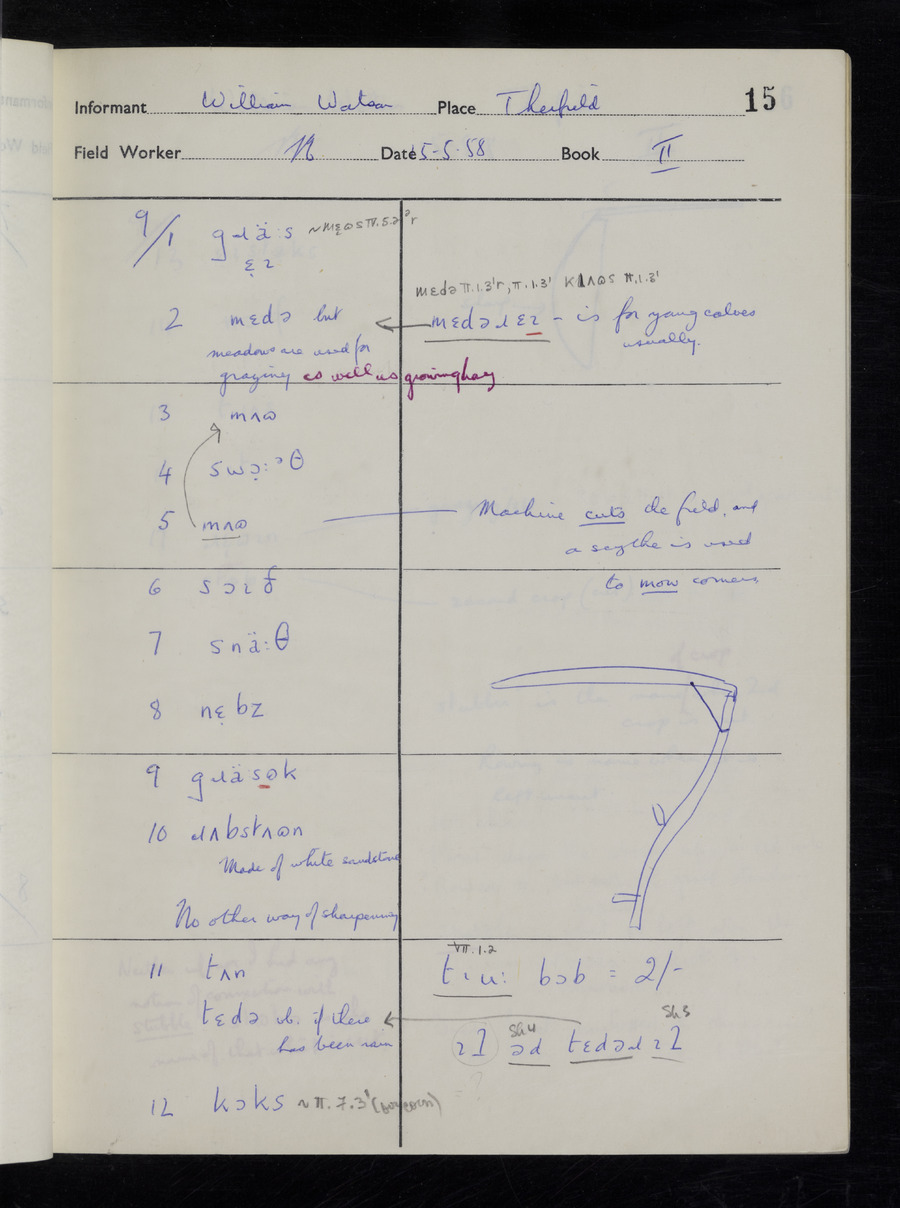 Informant William Watson Place Therfield 15
Field Worker N Date 5-5-58 Book II
9/1 gɹä:s
mɛdə II.1.3'r, II.1.3' klʌɷs II.1.3'
2 mɛdə but mɛdəɹ - is for young calves
meadows are used for usually.
grazing as well as growing hay
3 mʌɷ
4 swɔ̣:ᵊθ
5 mʌɷ Machine cuts the field, and
a scythe is used
to mow corners
6 sɔɪð
7 snä:θ
8 nɛ̣bz
9 gɹäsɷk
10 ɹʌbstʌɷn
Made of white sandstone
No other way of sharpening
VII.1.2
11 tʌn tɪu: bɔb = 2/-
tɛdə vb. if there
has been rain
Sh4 Sh3
əd tɛdəd
12 kɔks ~ II.7.3'